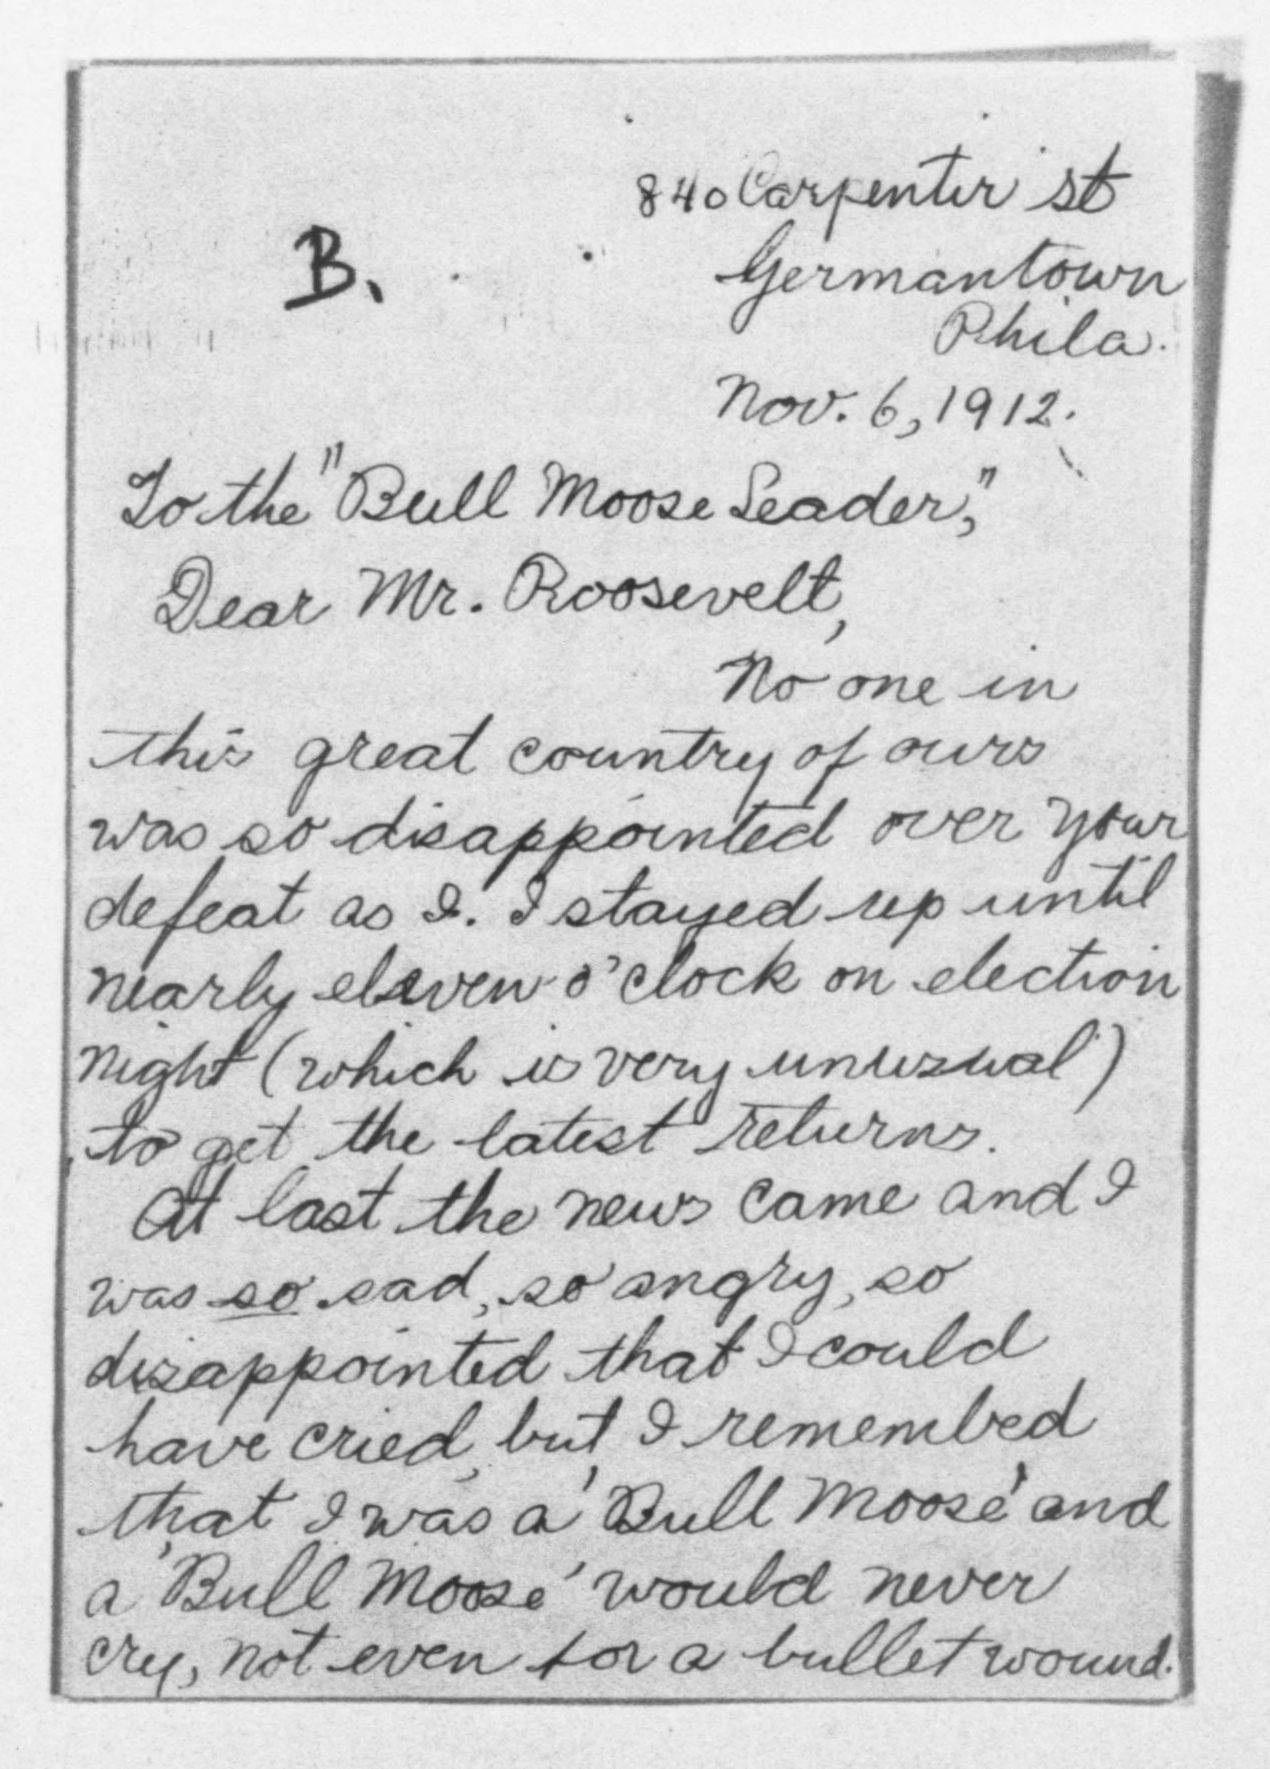 840 Carpenter st
B.
Germantown
Phila.
Nov. 6, 1912.
To the "Bull Moose Leader,"
Dear Mr. Roosevelt,
No one in
this great country of ours
was so disappointed over your
defeat as I. I stayed up until
nearly eleven o'clock on election
night (which is very unusual)
to get the latest returns.
At last the news came and I
was so sad, so angry, so
disappointed that I could
have cried, but, I remembed
that I was a 'Bull Moose' and
a 'Bull Moose' would never
cry, not even for a bullet wound.